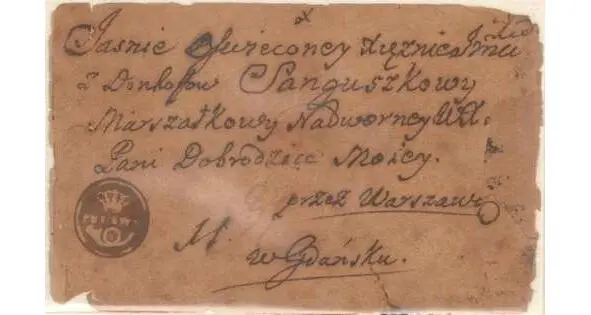 Jaśnie Oświeconcy Xiężnicze Jmci
z Donhoffow Sanguszkowy
Marszałkowy Nadworney WXL.
Pani Dobrodziee Moiey.
przez Warszawę
w Gdańsku.